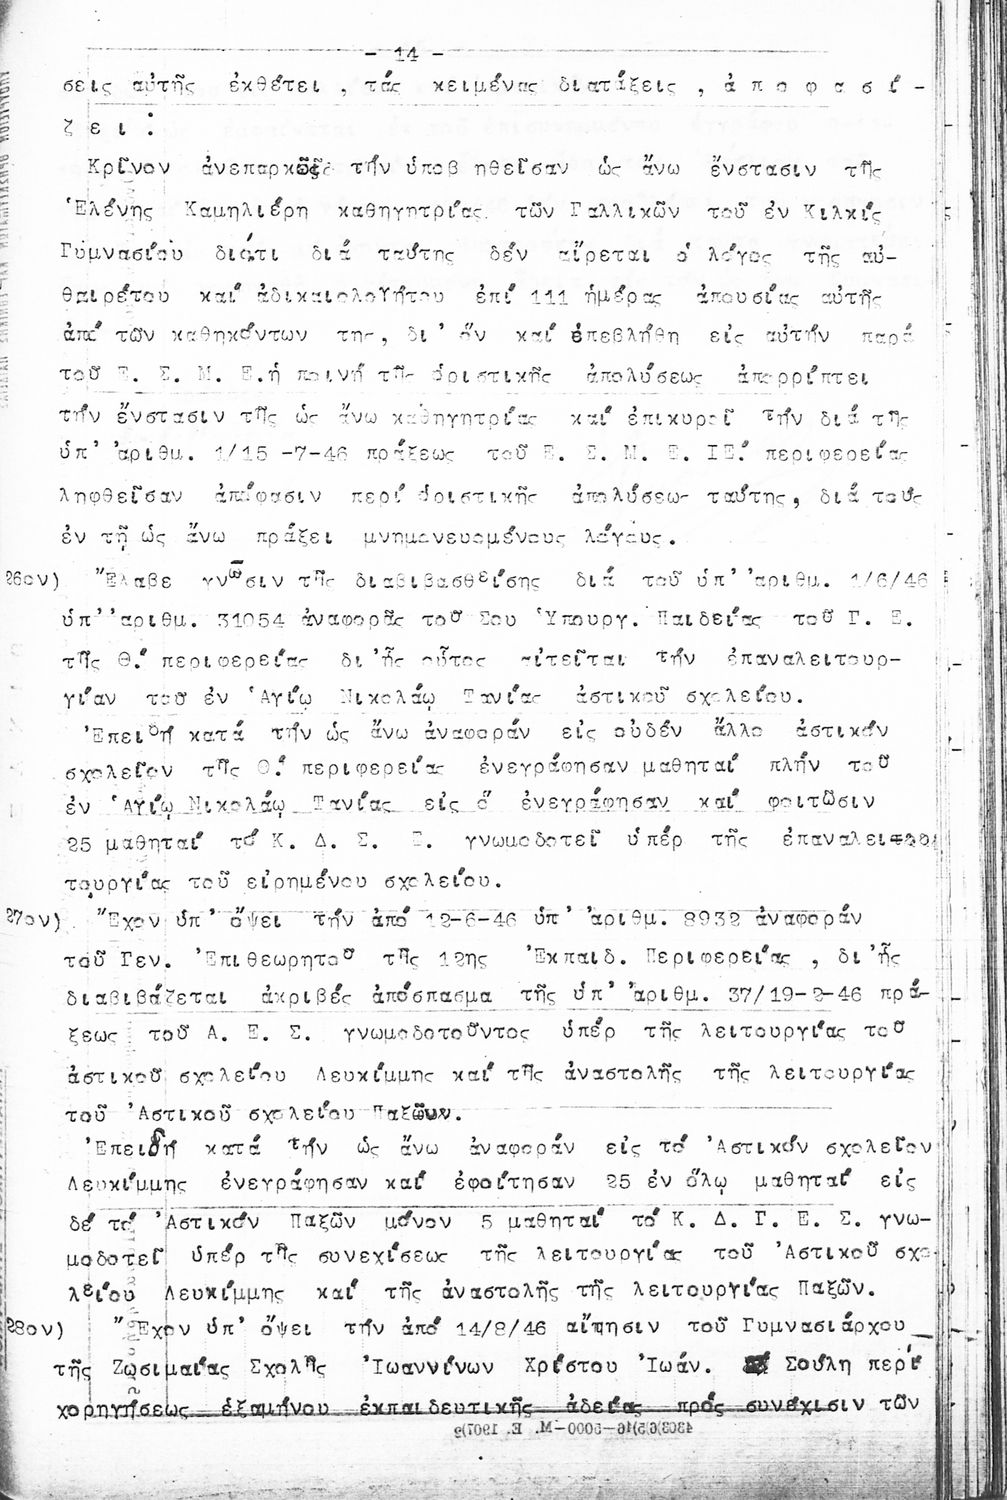 - 14 -
σεις αὐτῆς ἐκθέτει , τάς κειμένας διατάξεις , ἀ π ο φ α σ ί -
ζ ε ι :
Κρῖνον ἀνεπαρκῶς τήν ὑποβ ηθεῖσαν ὡς ἄνω ἔνστασιν τῆς
Ἑλένης Καμηλιέρη καθηγητρίας τῶν Γαλλικῶν τοῦ ἐν Κιλκίς
Γυμνασίου διότι διά ταύτης δέν αἴρεται ὁ λόγος τῆς αὐ-
θαιρέτου καί ἀδικαιολογήτου ἐπί 111 ἡμέρας ἀπουσίας αὐτῆς
ἀπό τῶν καθηκόντων της, δι' ὅν καί ἐπεβλήθη εἰς αὐτήν παρά
τοῦ Ε. Σ. Μ. Ε.ἡ ποινή τῆς ὁριστικῆς ἀπολύσεως ἀπορρίπτει
τήν ἔνστασιν τῆς ὡς ἄνω καθηγητρίας καί ἐπικυροῖ τήν διά τῆς
ὑπ' ἀριθμ. 1/15 -7-46 πράξεως τοῦ Ε. Σ. Μ. Ε. ΙΕ.' περιφερείας
ληφθεῖσαν ἀπόφασιν περί ὁριστικῆς ἀπολύσεως ταύτης, διά τούς
ἐν τῇ ὡς ἄνω πράξει μνημονευομένους λόγους.
26ον) Ἔλαβε γνῶσιν τῆς διαβιβασθείσης διά τοῦ ὑπ' ἀριθμ. 1/6/46
ὑπ' ἀριθμ. 31054 ἀναφορᾶς τοῦ Σου Ὑπουργ. Παιδείας τοῦ Γ. Ε.
τῆς Θ.' περιφερείας δι' ἧς οὗτος αἰτεῖται τήν ἐπαναλειτουρ-
γίαν τοῦ ἐν Ἁγίῳ Νικολάῳ Τανίας ἀστικοῦ σχολείου.
Ἐπειδή κατά τήν ὡς ἄνω ἀναφοράν εἰς οὐδέν ἄλλο ἀστικόν
σχολεῖον τῆς Θ.' περιφερείας ἐνεγράφησαν μαθηταί πλήν τοῦ
ἐν Ἁγίῳ Νικολάῳ Τανίας εἰς ὅ ἐνεγράφησαν καί φοιτῶσιν
25 μαθηταί τό Κ. Δ. Σ. Ε. γνωμοδοτεῖ ὑπέρ τῆς ἐπαναλει-
τουργίας τοῦ εἰρημένου σχολείου.
27ον) Ἔχον ὑπ' ὄψει τήν ἀπό 12-6-46 ὑπ' ἀριθμ. 8932 ἀναφοράν
τοῦ Γεν. Ἐπιθεωρητοῦ τῆς 12ης Ἐκπαιδ. Περιφερείας , δι' ἧς
διαβιβάζεται ἀκριβές ἀπόσπασμα τῆς ὑπ' ἀριθμ. 37/19-2-46 πρά-
ξεως τοῦ Α. Ε. Σ. γνωμοδοτοῦντος ὑπέρ τῆς λειτουργίας τοῦ
ἀστικοῦ σχολείου Λευκίμμης καί τῆς ἀναστολῆς τῆς λειτουργίας
τοῦ Ἀστικοῦ σχολείου Παξῶν.
Ἐπειδή κατά τήν ὡς ἄνω ἀναφοράν εἰς τό Ἀστικόν σχολεῖον
Λευκίμμης ἐνεγράφησαν καί ἐφοίτησαν 25 ἐν ὅλῳ μαθηταί εἰς
δέ τό Ἀστικόν Παξῶν μόνον 5 μαθηταί τό Κ. Δ. Γ. Ε. Σ. γνω-
μοδοτεῖ ὑπέρ τῆς συνεχίσεως τῆς λειτουργίας τοῦ Ἀστικοῦ σχο-
λείου Λευκίμμης καί τῆς ἀναστολῆς τῆς λειτουργίας Παξῶν.
28ον) Ἔχον ὑπ' ὄψει τήν ἀπό 14/8/46 αἴτησιν τοῦ Γυμνασιάρχου
τῆς Ζωσιμαίας Σχολῆς Ἰωαννίνων Χρίστου Ἰωάν. Σούλη περί
χορηγήσεως ἑξαμήνου ἐκπαιδευτικῆς ἀδείας πρός συνέχισιν τῶν